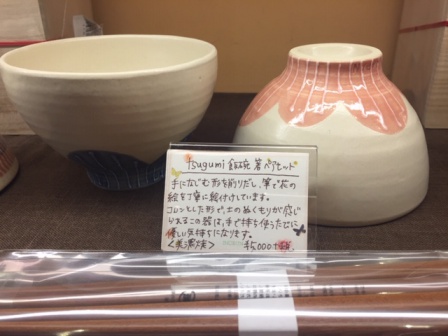 Tsugumi 飯碗 箸ペアセット
手になじむ形を削りだし、筆で花の
絵を丁寧に絵付けしています。
コロンとした形で、土のぬくもりが感じ
られるこの器は、手で持ち使うたびに
優しい気持ちになります。
<美濃焼> ¥5,000+税